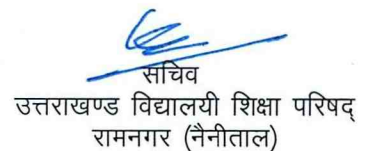 सचिव
उत्तराखण्ड विद्यालयी शिक्षा परिषद्
रामनगर (नैनीताल)